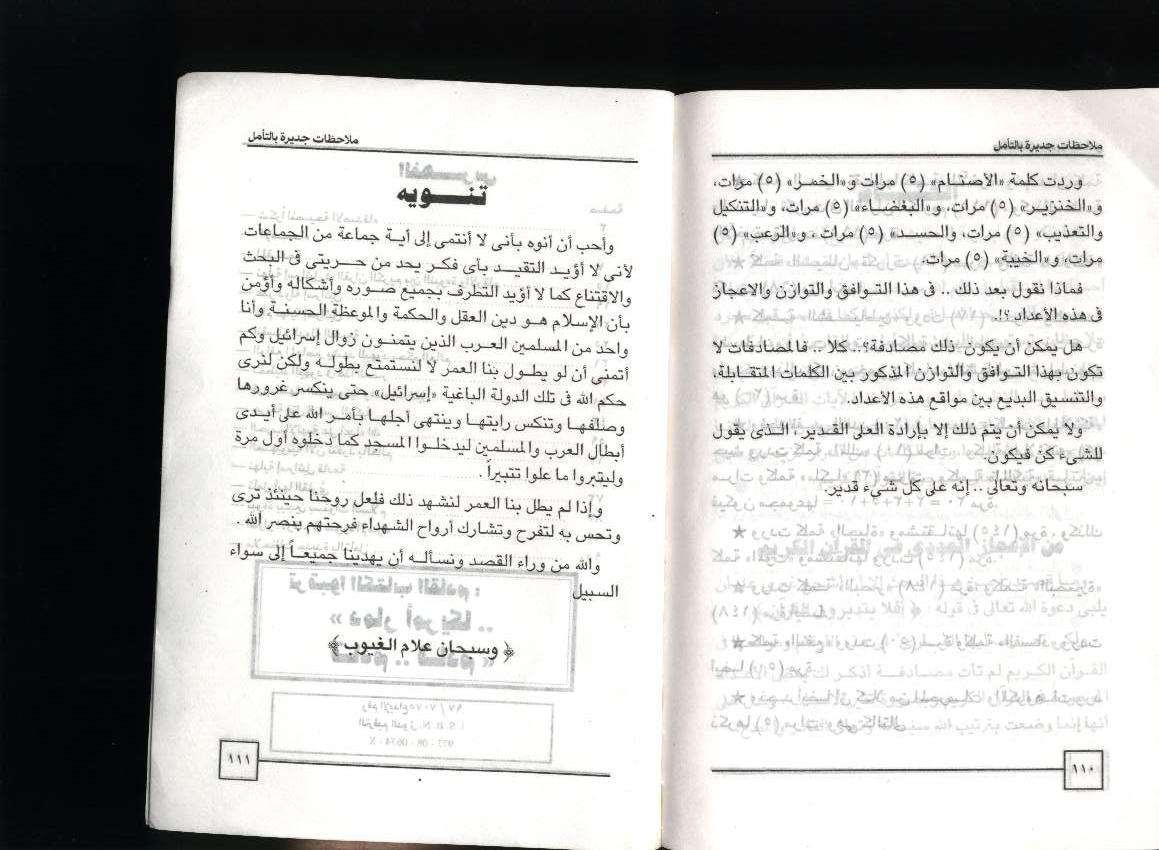 ملاحظات جديرة بالتأمل
وردت كلمة «الأصنام» (٥) مرات و«الخمر» (٥) مرات،
و«الخنزير» (٥) مرات، و«البغضاء» (٥) مرات، و«التنكيل
والتعذيب» (٥) مرات، والحسد» (٥) مرات ، و«الرعب» (٥)
مرات، و«الخيبة» (٥) مرات.
فماذا نقول بعد ذلك .. فى هذا التوافق والتوازن والاعجاز
فى هذه الأعداد ؟!.
هل يمكن أن يكون ذلك مصادفة؟.. كلا .. فالمصادفات لا
تكون بهذا التوافق والتوازن المذكور بين الكلمات المتقابلة،
والتنسيق البديع بين مواقع هذه الأعداد.
ولا يمكن أن يتم ذلك إلا بإرادة العلى القدير . الذى يقول
للشىء كن فيكون.
سبحانه وتعالى .. إنه على كل شىء قدير.
١١٠
ملاحظات جديرة بالتأمل
تنويه
وأحب أن أنوه بأنى لا أنتمى إلى أية جماعة من الجماعات
لأنى لا أؤيد التقيد بأى فكر يحد من حريتى فى البحث
والاقتناع كما لا أؤيد التطرف بجميع صوره وأشكاله وأؤمن
بأن الإسلام هو دين العقل والحكمة والموعظة الحسنة وأنا
واحد من المسلمين العرب الذين يتمنون زوال إسرائيل وكم
أتمنى أن لو يطول بنا العمر لا لنستمتع بطوله ولكن لنرى
حكم الله فى تلك الدولة الباغية «إسرائيل» حتى ينكسر غرورها
وصلفها وتنكس رايتها وينتهى أجلها بأمر الله على أيدى
أبطال العرب والمسلمين ليدخلوا المسجد كما دخلوه أول مرة
وليتبروا ما علوا تتبيراً .
وإذا لم يطل بنا العمر لنشهد ذلك فلعل روحنا حينئذ ترى
وتحس به لتفرح وتشارك أرواح الشهداء فرحتهم بنصر الله .
والله من وراء القصد ونسأله أن يهدينا جميعاً إلى سواء
السبيل
﴿ وسبحان علام الغيوب ﴾
١١١